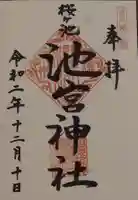 奉拝
桜ヶ池
池宮神社
令和二年十二月十日